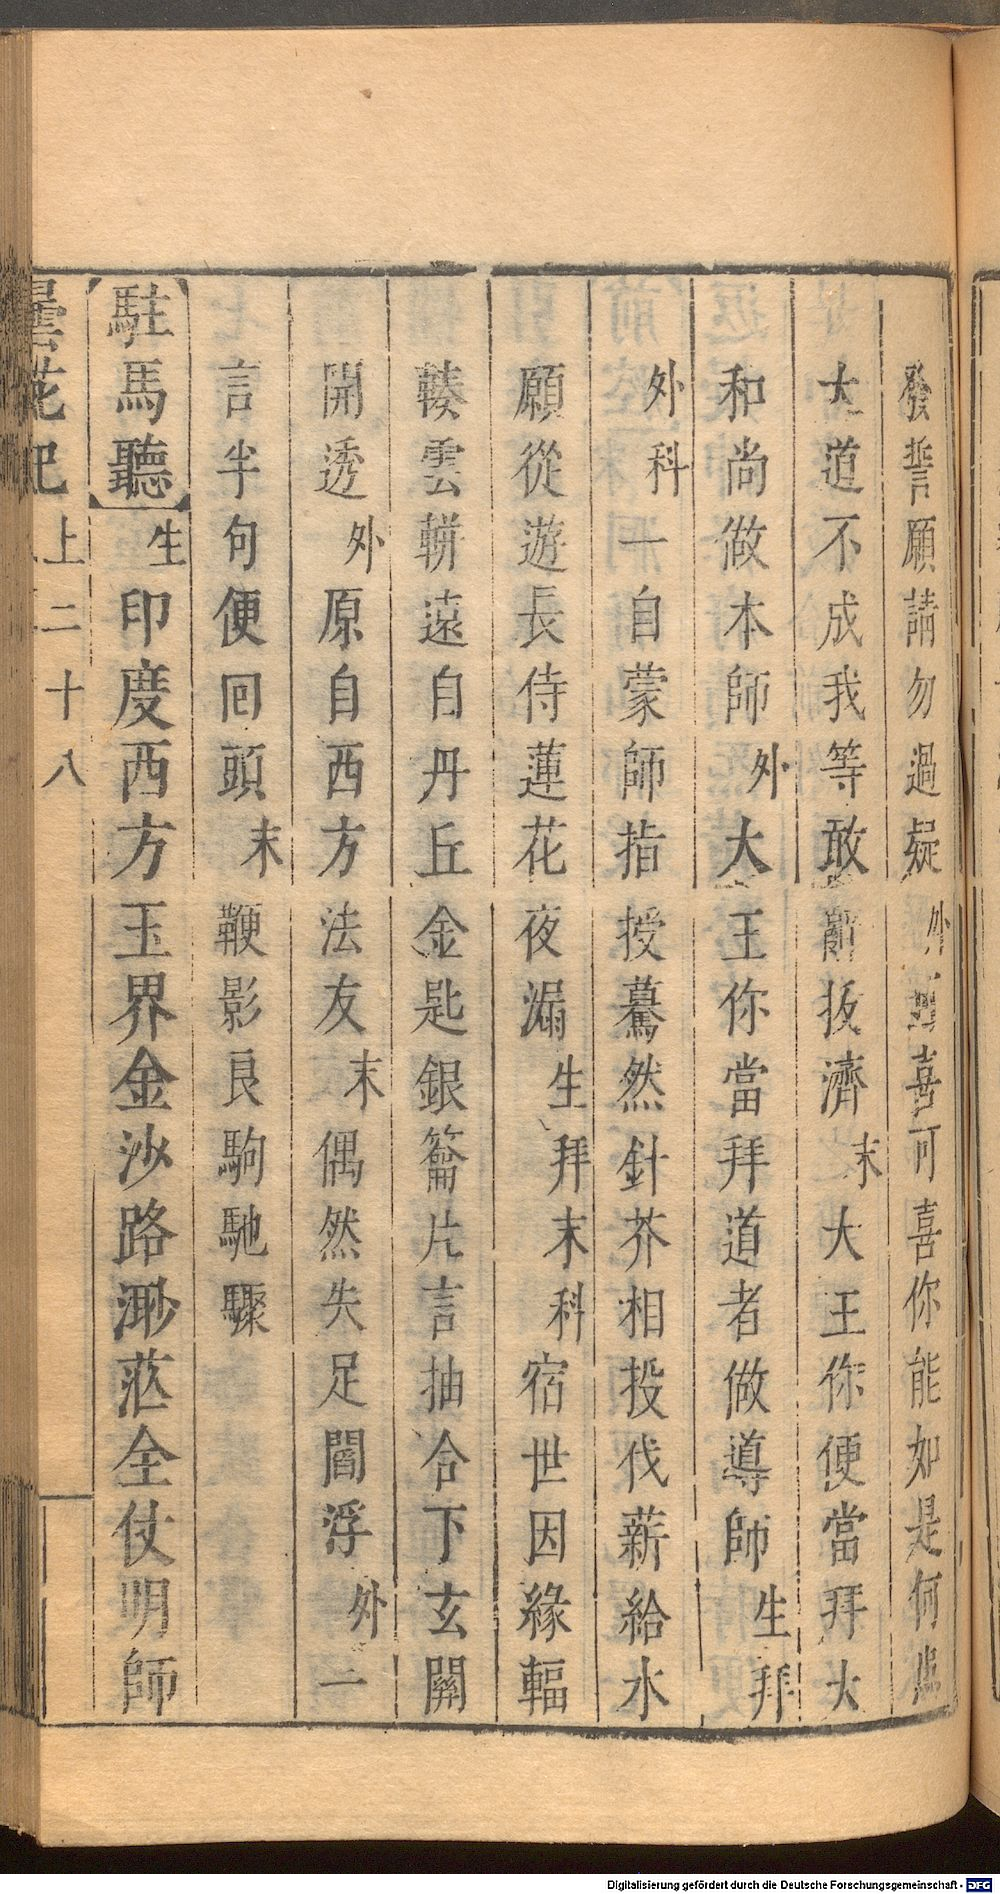 發誓願請勿過疑外喜可喜你能如是何
大道不成我等敢辭拔濟末大王你便當拜大
和尚做本師外大王你當拜道者做導師生拜
外科一自蒙師指授驀然針芥相投伐薪給水
願從遊長侍蓮花夜漏生拜末科宿世因緣輻
輳雲軿遠自丹丘金匙銀籥片言抽合下玄關
開透外原自西方法友末偶然失足閻浮外一
言半句便回頭末鞭影良駒馳驟
【駐馬聽】生印度西方玉界金沙路渺茫全仗明師
曇花記上二十八
Digitalisierung gefördert durch die Deutsche Forschungsgemeinschaft - DFG